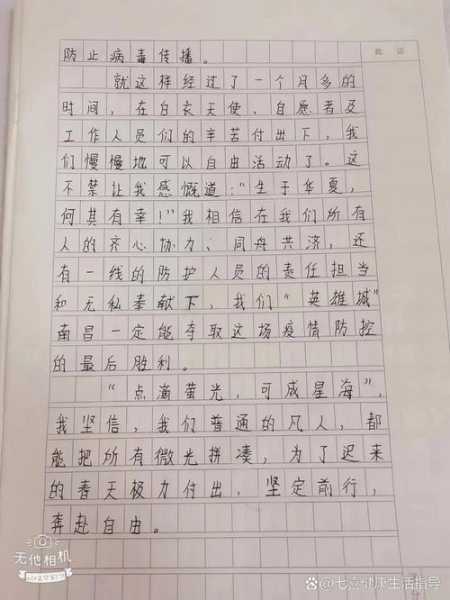 批语
防止病毒传播。
就这样经过了一个月多的
时间，在白衣天使、自愿者及
工作人员们的辛苦付出下，我
们慢慢地可以自由活动了。这
不禁让我感慨道："生于华夏，
何其有幸！"我相信在我们所有
人的齐心协力、同舟共济，还
有一线的防护人员的责任担当
和无私奉献下，我们"英雄城"
南昌一定能夺取这场疫情防控
的最后胜利。
"点滴萤光，可成星海"，
我坚信，我们普通的凡人，都
能把所有微光拼凑，为了迟来
的春天极力付出，坚定前行，
奔赴自由。
无他相机